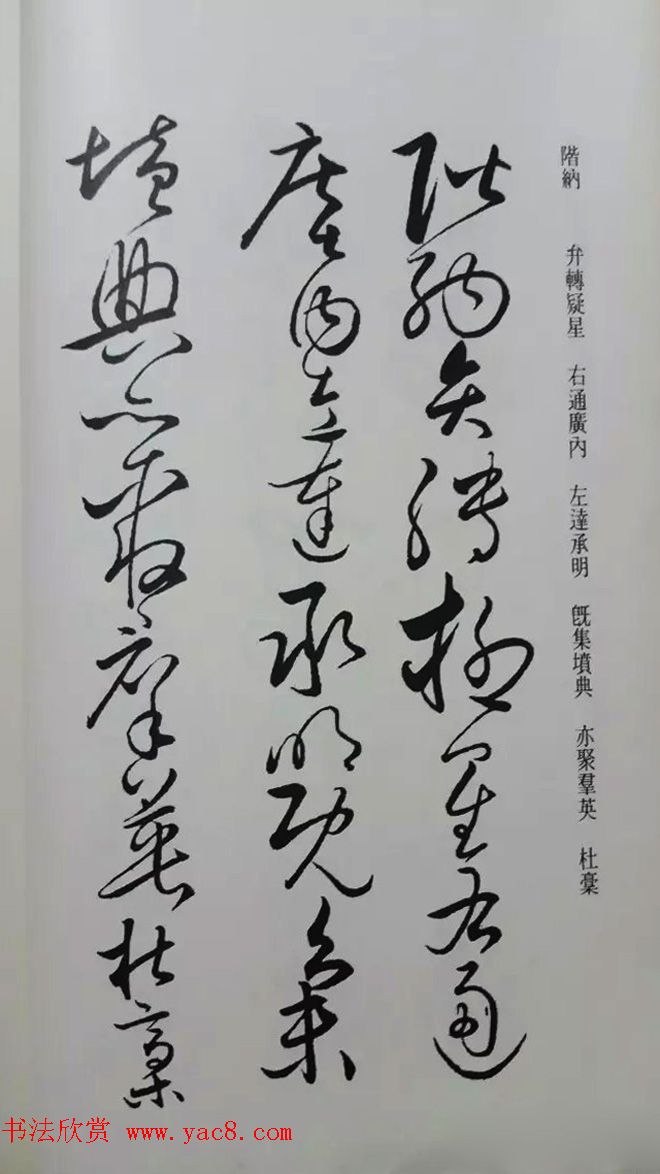 階納 弁轉疑星 右通廣內 左達承明 旣集墳典 亦聚羣英 杜稾
階納弁轉疑星右通
廣內左達承明旣集
墳典亦聚羣英杜稾
书法欣赏 www.yac8.com